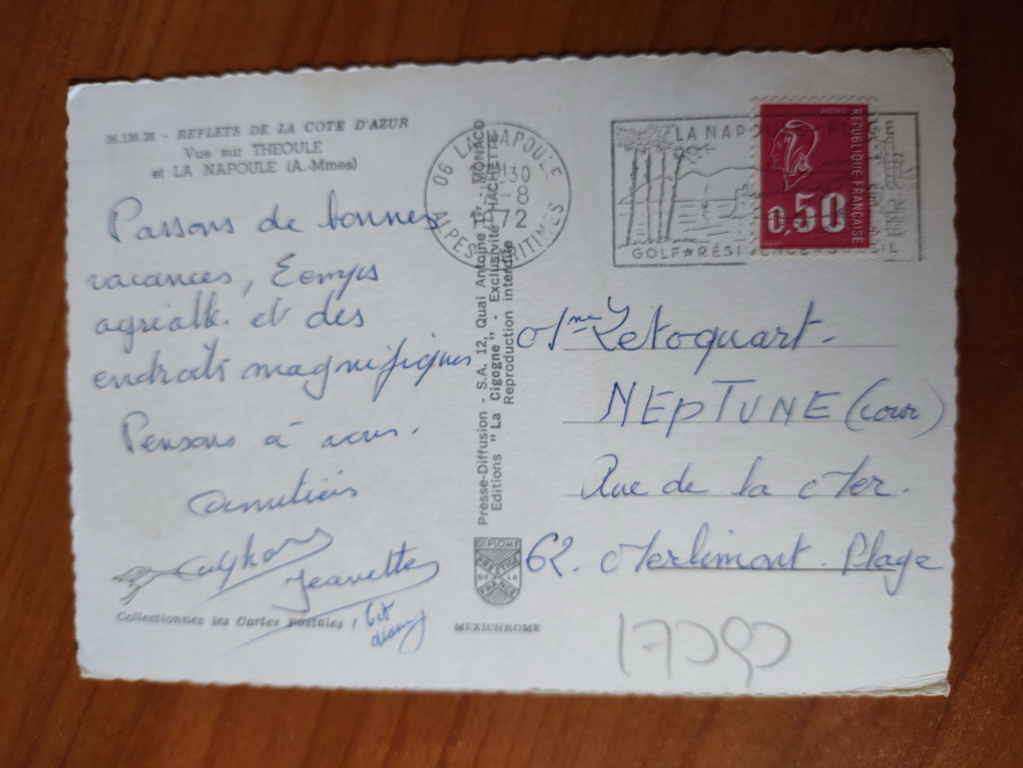 06.138.28 - REFLETS DE LA COTE D'AZUR
Vue sur THEOULE
et LA NAPOULE (A.-Mmes)
Passons de bonnes
vacances, Temps
agréable. et des
endroits magnifiques
Pensons à vous.
Amitiés
Jeanette
Collectionnez les Cartes Postales !
MEXICHROME
Presse-Diffusion - S.A. 12, Quai Antoine 1er - MONACO
Editions "La Cigogne" - Exclusivité HACHETTE
Reproduction interdite
06 LA NAPOULE
30
-8
72
ALPES MARITIMES
LA NAPOULE PLAGE
GOLF★RÉSIDENCE
REPUBLIQUE FRANÇAISE
0,50
Mme Letoquart.
NEPTUNE (cour)
Rue de la Mer.
62. Merlimont. Plage